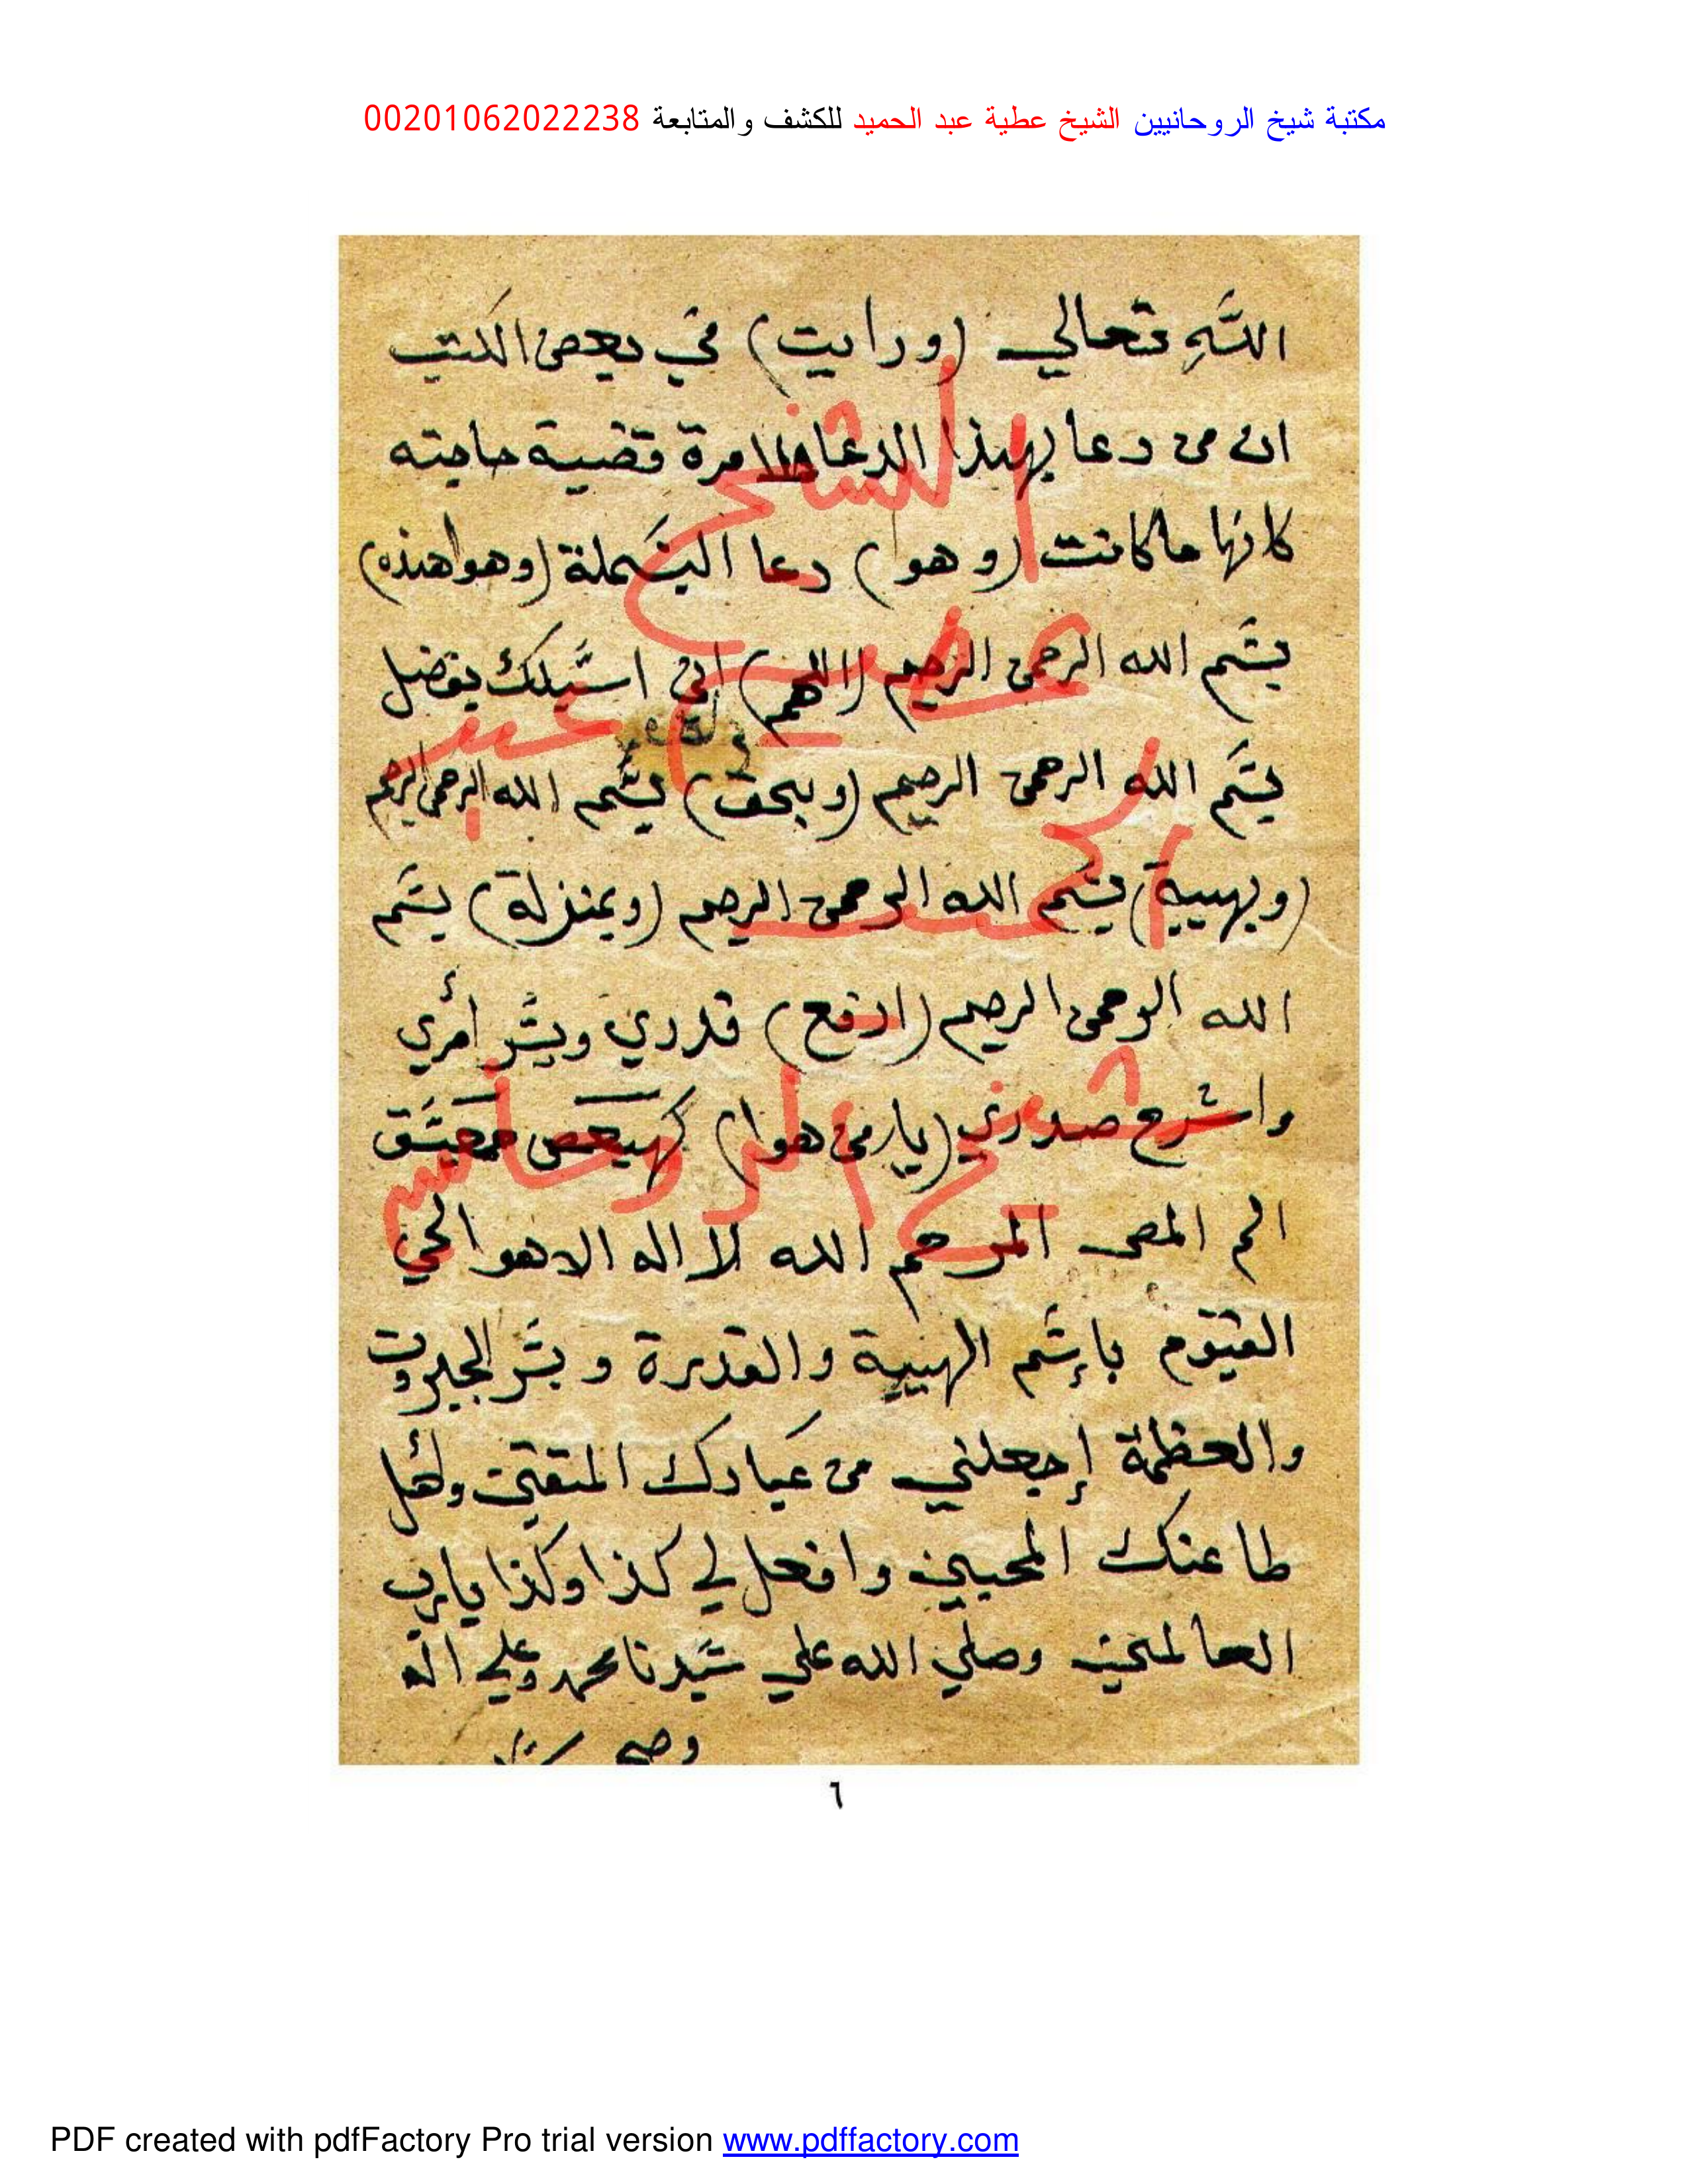 مكتبة شيخ الروحانيين الشيخ عطية عبد الحميد للكشف والمتابعة 00201062022238
الله تعالي (ورايت) في بعض الكتب
ان من دعا بهذا الدعا مرة قضية حاجته
كانها ما كانت (وهو) دعا البسملة (وهو هذه)
بسم الله الرحمن الرحيم (اللهم) اني اسيلك بفضل
بسم الله الرحمن الرحيم (وبحق) بسم الله الرحمن الرحيم
(وبهيبة) بسم الله الرحمن الرحيم (وبمنزلة) بسم
الله الرحمن الرحيم (ارفع) قدري ويسر أمري
واشرح صدري (يا من هوا) كهيعص حمعسق
الم المص المر حم الله لا اله الا هو الحي
القيوم بإسم الهيبة والقدرة و بسر الجبروت
والعظمة إجعلني من عبادك المتقين وأهل
طاعتك المحبين وافعل لي كذا وكذا يا رب
العالمين وصلي الله علي سيدنا محمد وعلي اله
٦
الشيخ
عطية
عبد
الحميد
شيخ الروحانيين
PDF created with pdfFactory Pro trial version www.pdffactory.com